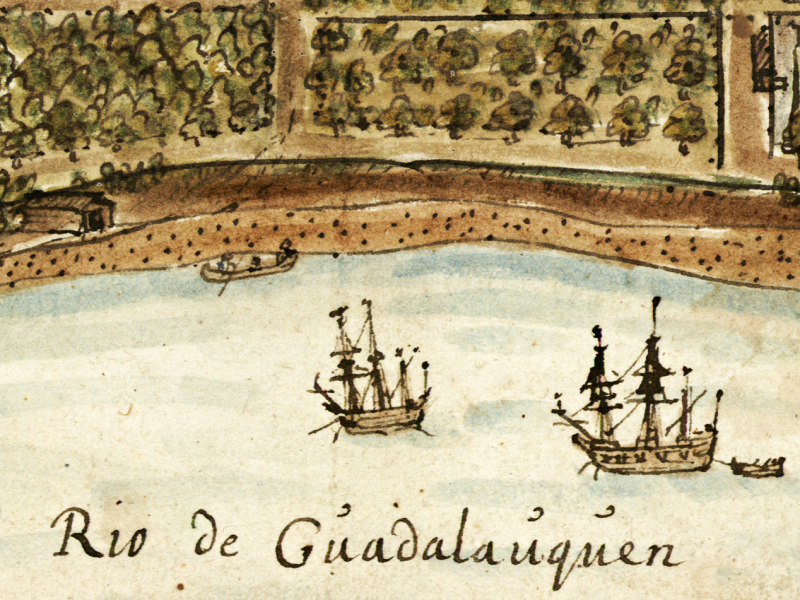 Rio de Gŭadalaŭqŭen